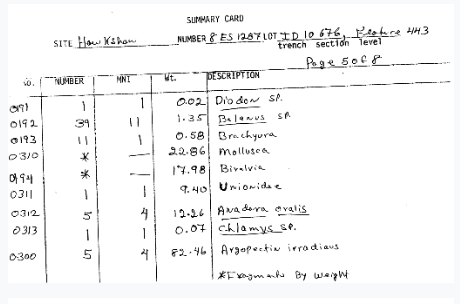 SUMMARY CARD
SITE Hawkshaw NUMBER 8 ES 1287 LOT ID 10 676, Feature 443
trench section level
Page 5 of 8
NO. NUMBER MNI Wt. DESCRIPTION
0191 1 1 0.02 Diodon sp.
0192 39 11 1.35 Balanus sp.
0193 11 1 0.58 Brachyura
0310 * — 22.86 Mollusca
0194 * — 17.98 Bivalvia
0311 1 1 9.40 Unionidae
0312 5 4 12.26 Anadara ovalis
0313 1 1 0.07 Chlamys sp.
0300 5 4 82.46 Argopectin irradians
*Fragments By Weight